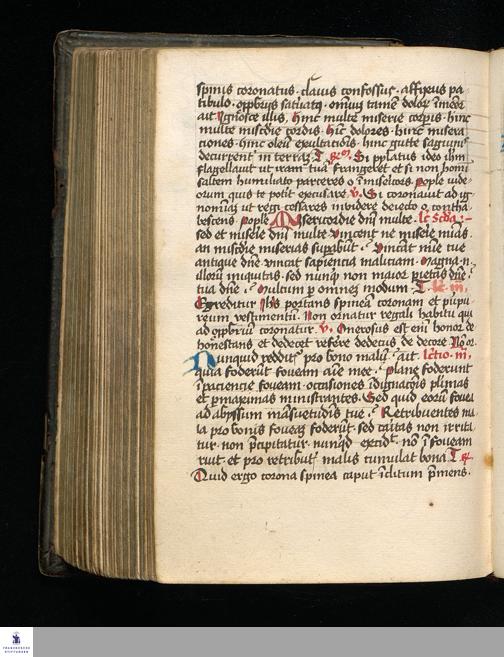 spinis coronatus · clauis confossus · affixus pa
tibulo · opprobrijs saturatq · omniu tame dolor imeor
ait Ignosce illis, hinc multe miserie corpis · hinc
multe miscdie cordis · hic dolores · hinc misera
ciones · hinc oleu exultacionis · hinc gutte saguinis
decurrentis in terra
Si pylatus ideo ihm
flagellauit ut iram tua frangeret et si non homi
saltem humiliato parceres o miselicors Pople iude
orum quis te potit excusare v. Si coronauit ad ig
nominia ut regi cessares inuidere deiecto o contra
bescens Pople Misericordie dni multe · lc scda
sed et miserie dni multe vincent ne miserie mias
an miscdie miserias supabut · Vincat mie tue
antique dne vincat sapiencia maliciam · Magna n
illoru iniquitas · sed nunqd non maior pietas dne
tua dne · Multum p omne modum · T. lc. iii.
Egreditur Ihs portans spinea coronam et purpu
reum vestimentu · Non ornatur regali habitu qui
ad opprbriu coronatur v. Onerosus est eni honor de
honestans et dedecet referre dedecus de decore Non or
Nunquid redditur pro bono malu · ait lctio. iii,
quia foderut foueam aie mee · plane foderunt
ipaciencie foueam · occasiones idignacois plimas
et pmaximas ministrantes · Sed quid eoru fouea
ad abyssum masuetudis tue · Retribuentes ma
la pro bonis foueas foderut · sed caritas non irrita
tur · non pcipitatur · nunqd excidit no i foueam
ruit · et pro retributis malis cumulat bona T. R.
Quid ergo corona spinea caput iclitum pmens ·
FRANCKESCHE
STIFTUNGEN